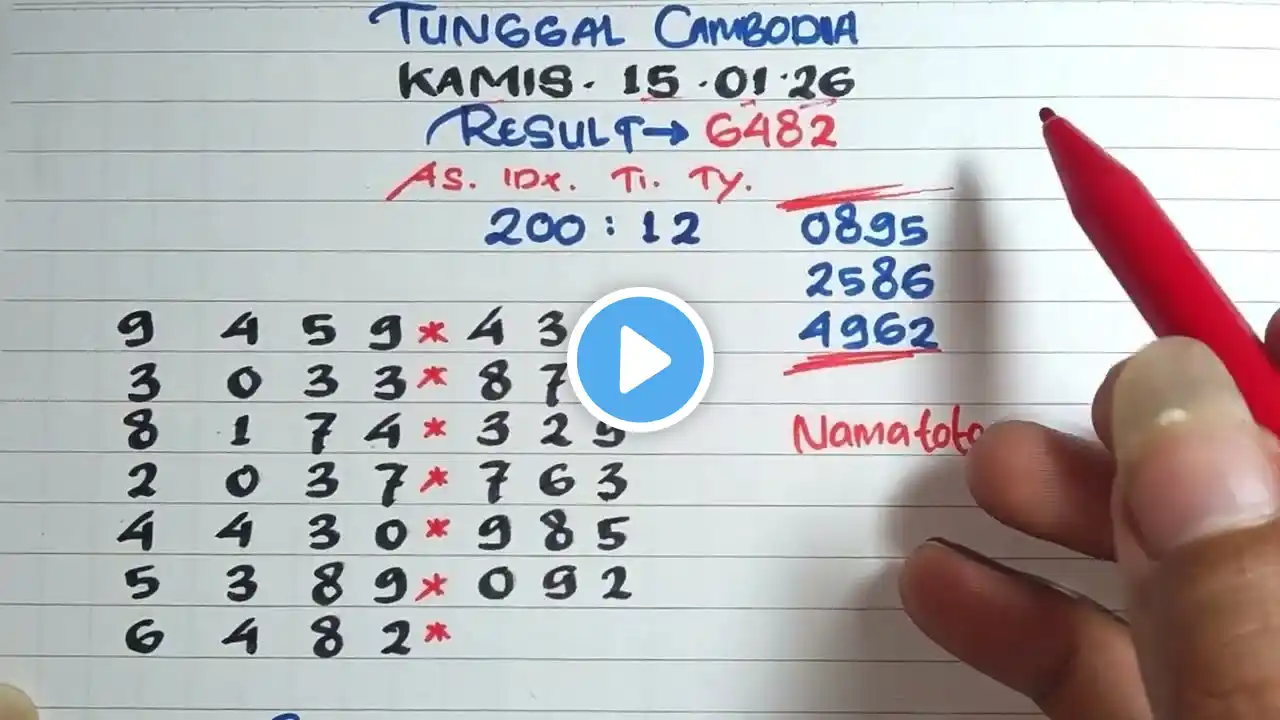 TUNGGAL CAMBODIA
KAMIS. 15.01.26
RESULT→6482
AS. IDX. TI. TY.
200 : 12 0895
2586
4962
9 4 5 9 * 4 3
3 0 3 3 * 8 7
8 1 7 4 * 3 2 5
Namatoto
2 0 3 7 * 7 6 3
4 4 3 0 * 9 8 5
5 3 8 9 * 0 9 2
6 4 8 2 *